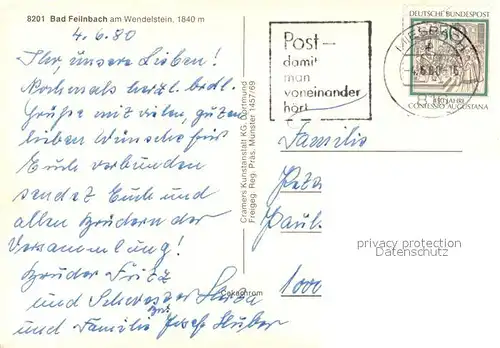 8201 Bad Feilnbach am Wendelstein, 1840 m
4.6.80
Ihr, unsere Lieben!
Nochmals herzl. brdl.
Grüße mit vielen, guten
lieben Wünsche für
Euch verbunden
sendet Euch und
allen Brüdern der
Versammlung!
Bruder Fritz
und Schwester
und Familie Josef Huber
Cramers Kunstanstalt KG, Dortmund
Freigeg. Reg. Präs. Münster 1457/69
Cekachrom
Post –
damit
man
voneinander
hört
MIESBACH
DEUTSCHE BUNDESPOST
450 JAHRE
CONFESSIO AUGUSTANA
Familie
Paul
1000
privacy protection
Datenschutz